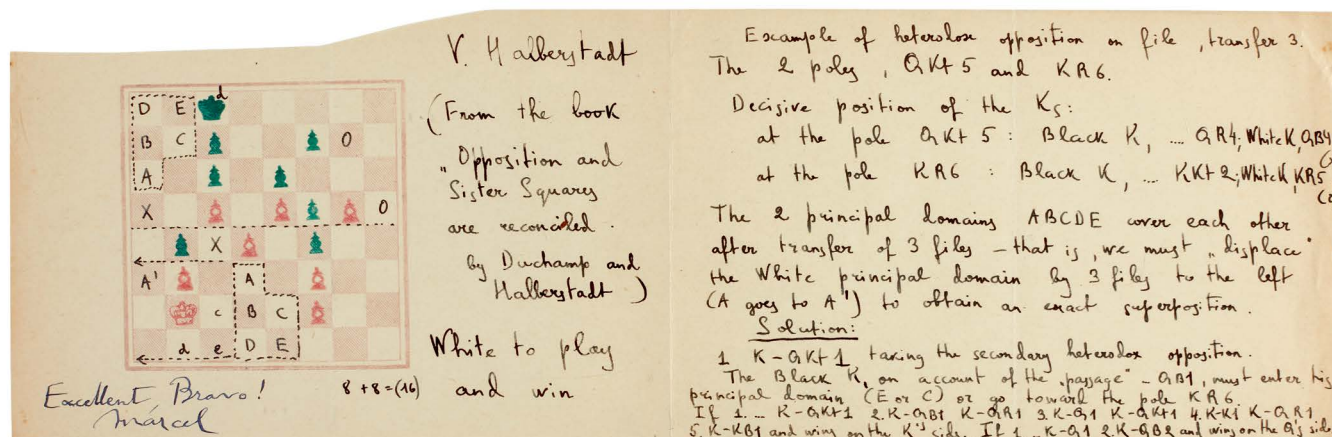 D E d
B C O
A
X O
X
A' A
c B C
d e D E
8 + 8 = (16)
Excellent, Bravo!
Marcel
V. Halberstadt
(From the book
„Opposition and
Sister Squares
are reconciled.
by Duchamp and
Halberstadt)
White to play
and win
Example of heterodox opposition on file, transfer 3.
The 2 poles, QKt 5 and KR6.
Decisive position of the Ks:
at the pole QKt 5 : Black K, .... QR4; White K, QB4
at the pole KR6 : Black K, .... KKt 2; White K, KR5
The 2 principal domains ABCDE cover each other
after transfer of 3 files – that is, we must „displace"
the White principal domain by 3 files to the left
(A goes to A') to obtain an exact superposition.
Solution:
1 K-QKt 1, taking the secondary heterodox opposition.
The Black K, on account of the „passage" – QB1, must enter his
principal domain (E or C) or go toward the pole KR6.
If 1... K-QKt1 2.K-QB1 K-QR1 3.K-Q1 K-QKt1 4.K-K1 K-QR1
5. K-KB1 and wins on the K's side. If 1 .. K-Q1 2.K-QB2 and wins on the Q's side